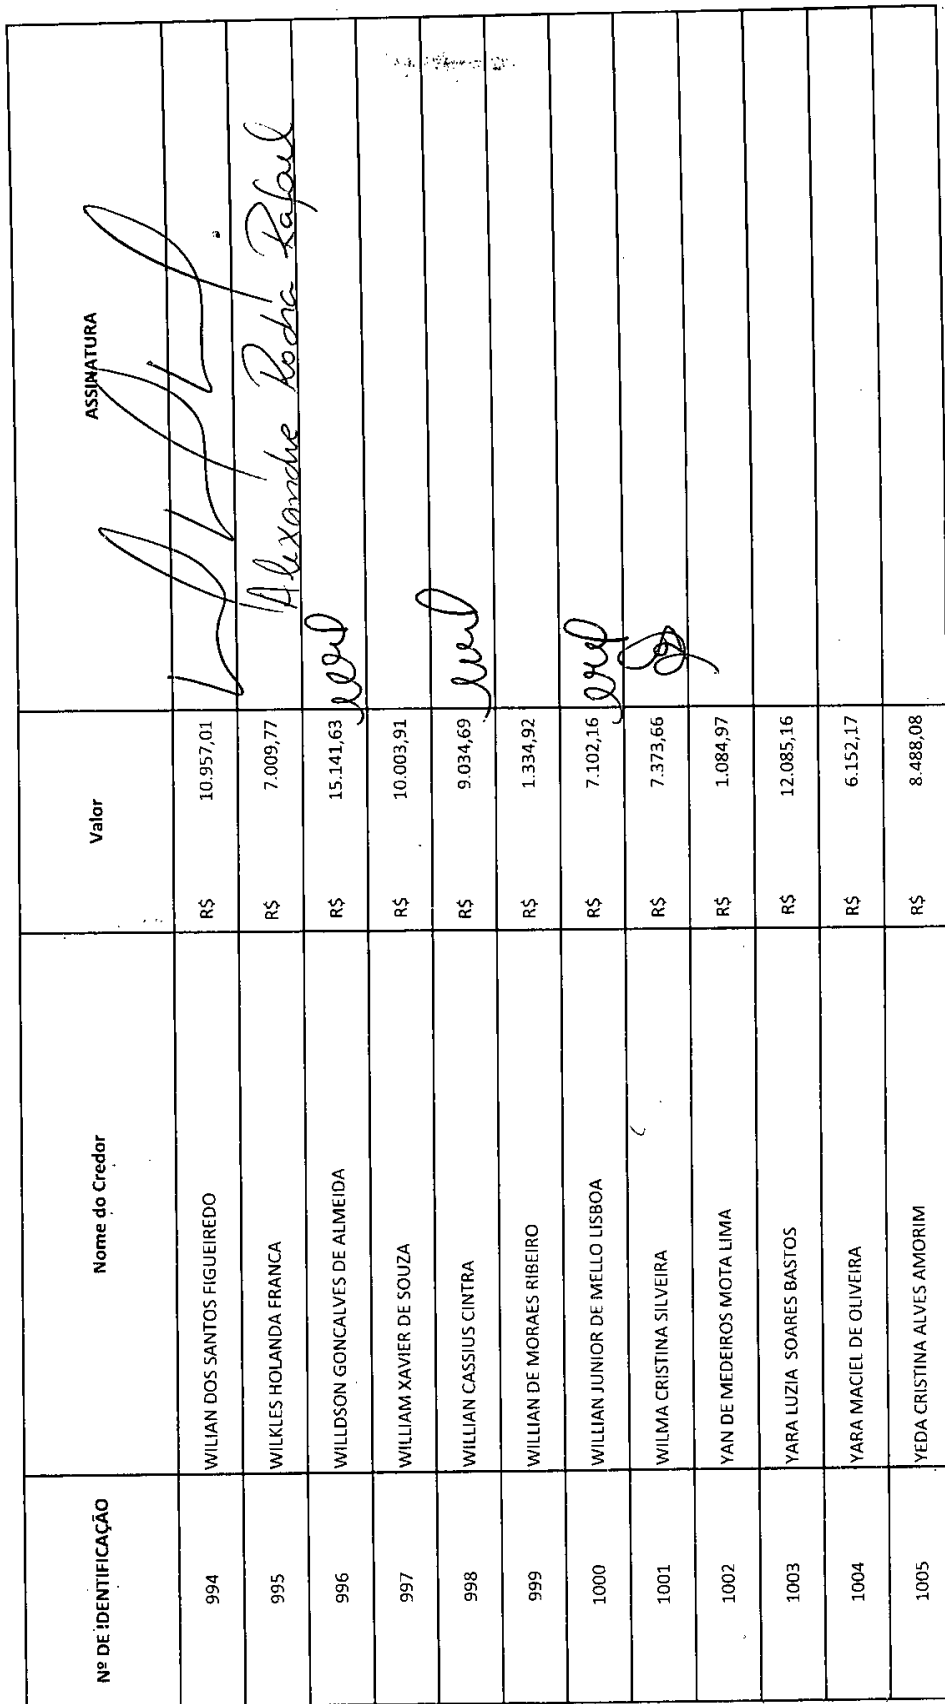 Nº DE IDENTIFICAÇÃO Nome do Credor Valor ASSINATURA
994 WILIAN DOS SANTOS FIGUEIREDO R$ 10.957,01
995 WILKLES HOLANDA FRANCA R$ 7.009,77 Alexandre Rocha Rafael
996 WILLDSON GONCALVES DE ALMEIDA R$ 15.141,63
997 WILLIAM XAVIER DE SOUZA R$ 10.003,91
998 WILLIAN CASSIUS CINTRA R$ 9.034,69
999 WILLIAN DE MORAES RIBEIRO R$ 1.334,92
1000 WILLIAN JUNIOR DE MELLO LISBOA R$ 7.102,16
1001 WILMA CRISTINA SILVEIRA R$ 7.373,66
1002 YAN DE MEDEIROS MOTA LIMA R$ 1.084,97
1003 YARA LUZIA SOARES BASTOS R$ 12.085,16
1004 YARA MACIEL DE OLIVEIRA R$ 6.152,17
1005 YEDA CRISTINA ALVES AMORIM R$ 8.488,08